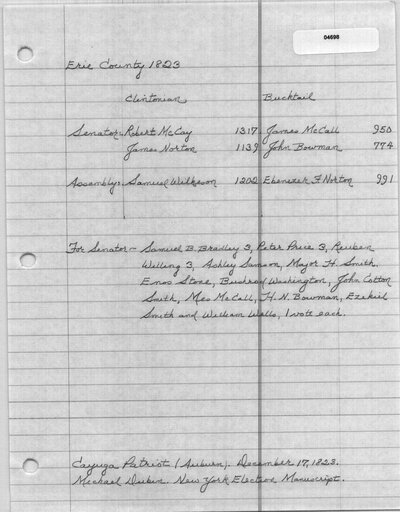 04698
Erie County 1823
Clintonian Bucktail
Senator- Robert McCay 1317. James McCall 950
James Norton 1139 John Bowman 774
Assembly. Samuel Wilkeson 1202 Ebenezer F. Norton 991
For Senator - Samuel B. Bradley 3, Peter Price 3, Reuben
Welling 3, Ashley Samson, Major H. Smith.
Enos Stone, Bushrod Washington, John Cotton
Smith, Mes McCall, H. N. Bowman, Ezekiel
Smith and William Wells, 1 vote each.
Cayuga Patriot (Auburn). December 17, 1823.
Michael Dubin. New York Election Manuscript.